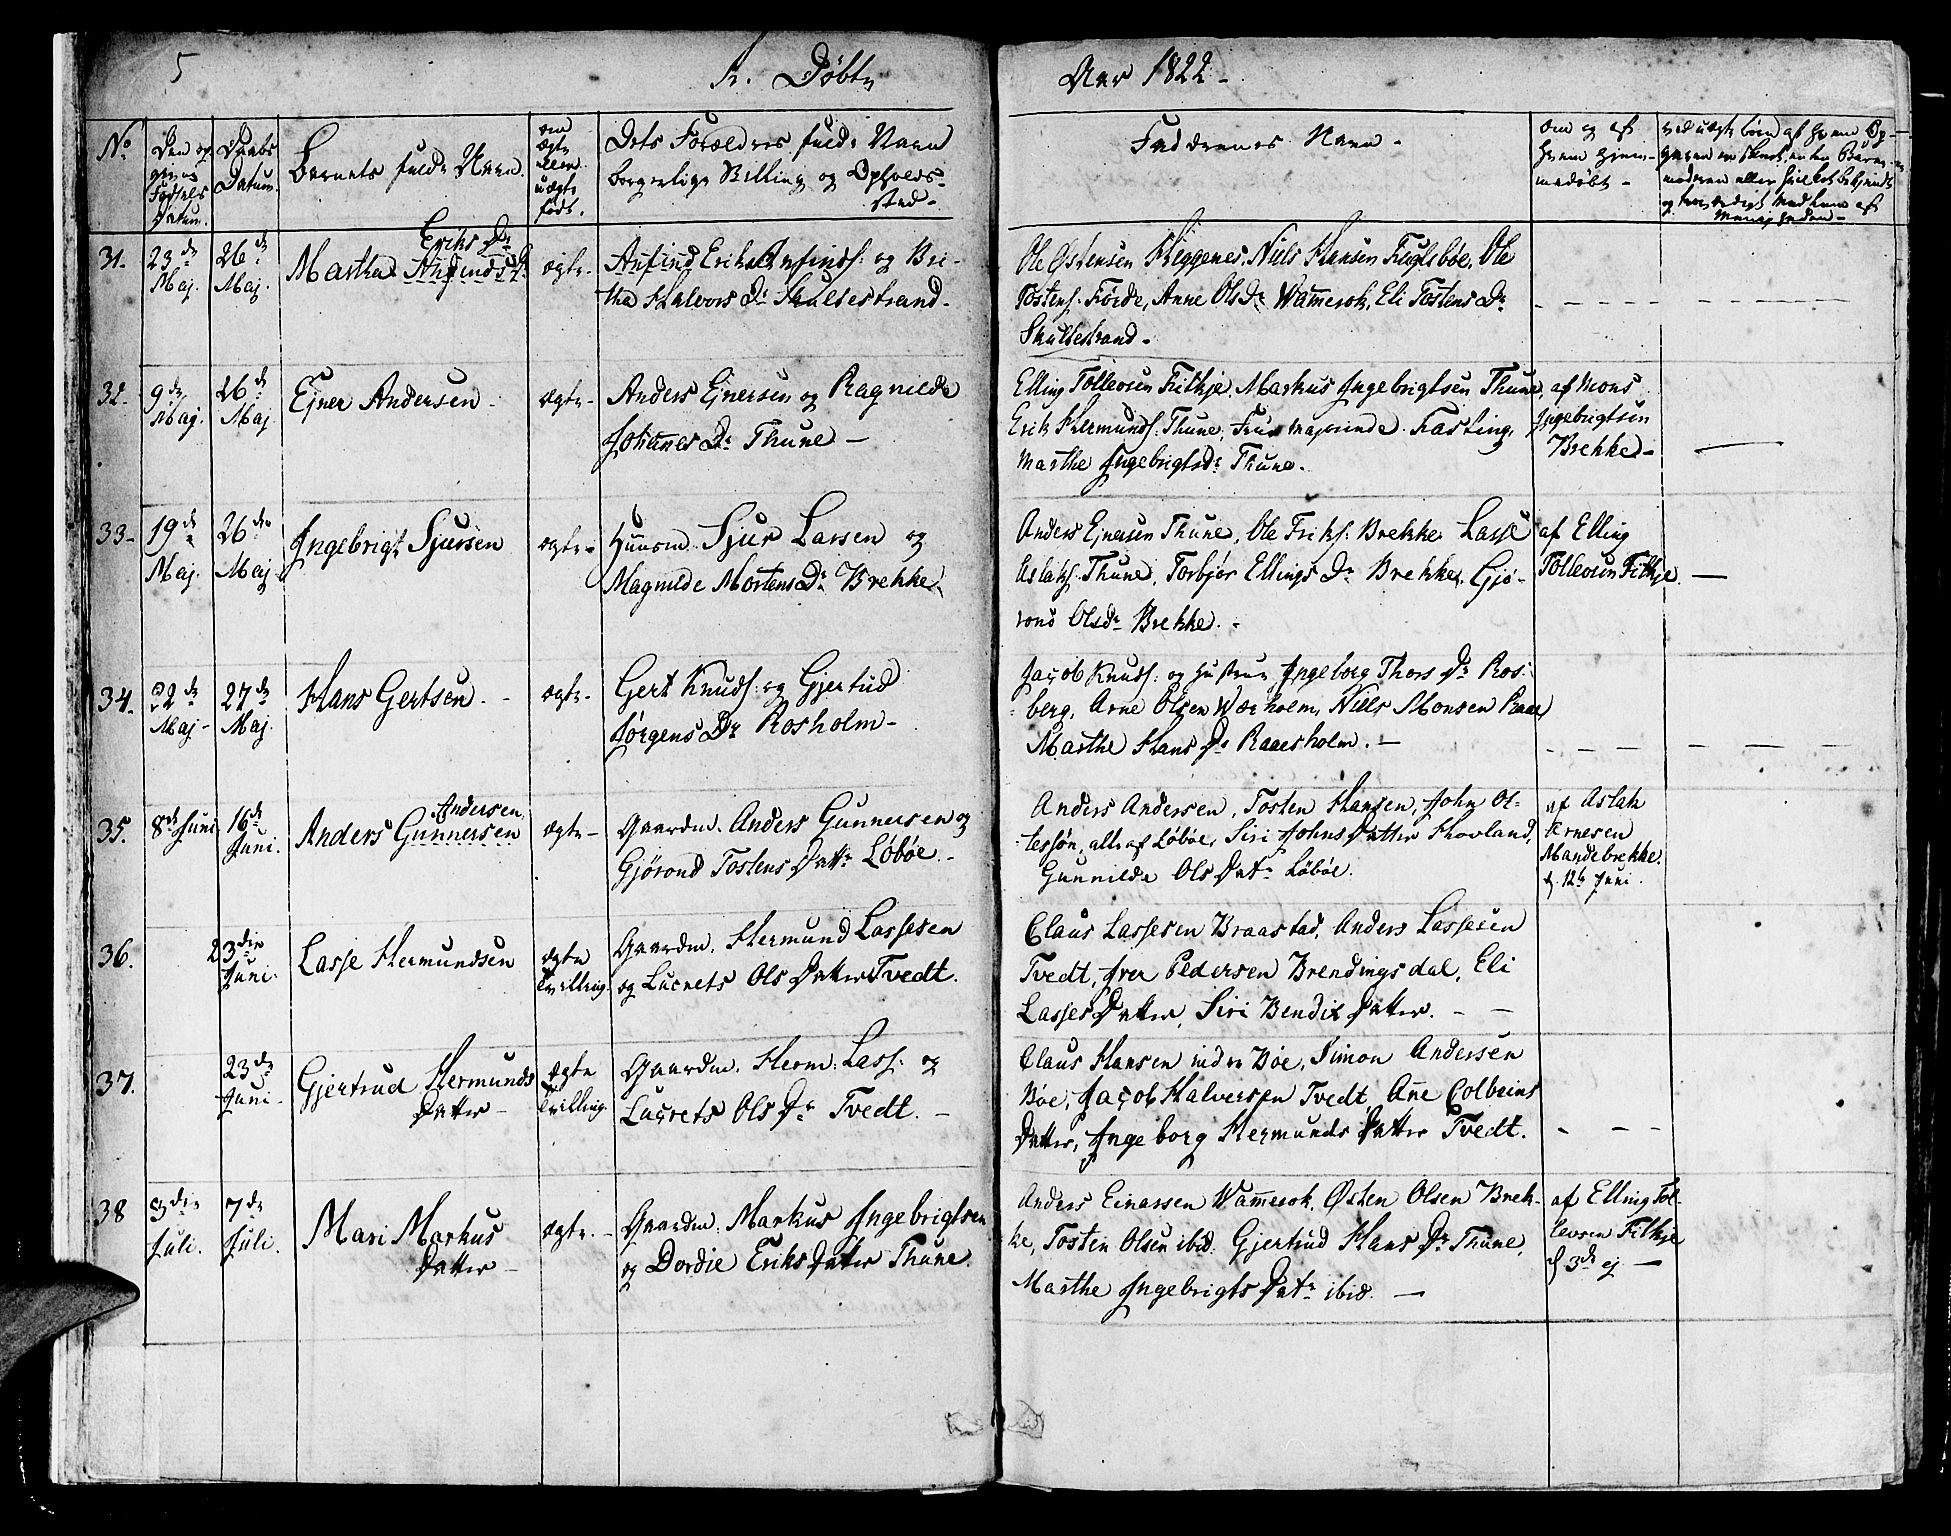 5
Døbte
Aar 1822 -
No
Den og
Fødsels
Datum.
Daabs
Datum.
Barnets fulde Navn.
om
ægte
eller
uægte
født.
Dets Forældres fulde Navn
borgerlige Stilling og Opholds-
sted -
Faddernes Navn -
om og af
hvem hjem-
medøbt -
31.
23de
Maj.
26de
Maj.
Eriks Dr
Martha Anfinds Dr
ægte -
Anfind Erik Anfinds: og Bri-
tha Halvors Dr Skuldestrand.
Ole Østensen Heggenes, Niels Hansen Fuglebøe, Ole
Tostens. Førde, Anne Ols Dr Wamerok, Eli Tostens Dr
Skuldestrand -
32.
9de
Maj.
26de
Maj
Ejner Andersen -
ægte -
Anders Ejnersen og Ragnilde
Johannes Dr Thune -
Elling Tolleosen Fitkje, Markus Ingebrigtsen Thune,
Erik Hermunds: Thune, Frue Majorinde Fasting,
Marthe Ingebrigtsdr Thune.
af Mons
Ingebrigtsen
Brekke -
33 -
19de
Maj.
26de
Maj -
Ingebrigt Sjursen
ægte -
Huusm. Sjur Larsen og
Magnilde Mortens Dr Brekke
Anders Ejnersen Thune, Ole Eriks: Brekke, Lasse
Aslaks: Thune, Torbjør Ellings Dr Brekke, Gjø-
rond Olsdr Brekke. -
af Elling
Tolleosen Fitkje.
34.
22de
Maj -
27de
Maj.
Hans Gertsen. -
ægte -
Gert Knuds: og Gjertud
Jørgens Dr Rosholm -
Jacob Knuds: og Hustrue Ingeborg Thors Dr Ros-
berg, Arne Olsen Wærholm, Niels Monsen Raae
Marthe Hans Dr Raaesholm. -
35.
8de Juni
16de
Juni.
Andersen
Anders Gunnersen
ægte -
Gaardm. Anders Gunnersen og
Gjørond Tostens Datr Løbøe. -
Anders Andersen, Tosten Hansen, John Ol-
lessøn, alle af Løbøe, Siri Johns Datter Hovland,
Gunnilde Ols Datr Løbøe.
af Aslak
Arnesen
Mandebrekke.
d. 12te Juni.
36.
23die
Juni.
Lasse Hermundsen
ægte
Tvilling.
Gaardm. Hermund Lassesen
og Lucrets Ols Datter Tvedt.
Claus Lassesen Braastad, Anders Lassesen
Tvedt, Iver Pedersen Brendingsdal, Eli
Lasses Datter, Siri Bendix Datter. -
37.
23de
Juni -
Gjertrud Hermunds
Datter -
ægte
Tvilling
Gaardm. Herm: Lass: og
Lucrets Ols Dr Tvedt. -
Claus Hansen nedre Bøe, Simon Andersen
Bøe, Jacob Halversen Tvedt, Ane Colbeins
Datter, Ingeborg Hermunds Datter Tvedt.
38
3die
Juli.
7de
Juli.
Mari Markus
Datter -
ægte. -
Gaardm. Markus Ingebrigtsen
og Dordie Eriks Datter Thune.
Anders Einarsen Wamerok, Østen Olsen Brek-
ke, Tosten Olsen ibid. Gjertrud Hans Dr Thune,
Marthe Ingebrigts Datr ibid. -
af Elling Tol-
leosen Fitkje
d 3de ej -